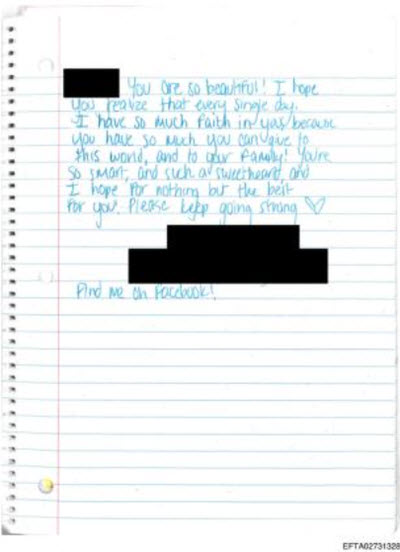 You are so beautiful! I hope
you realize that every single day.
I have so much faith in you because
you have so much you can give to
this world, and to your family! You're
so smart, and such a sweetheart, and
I hope for nothing but the best
for you. Please keep going strong ♡
Find me on Facebook!
EFTA02731328